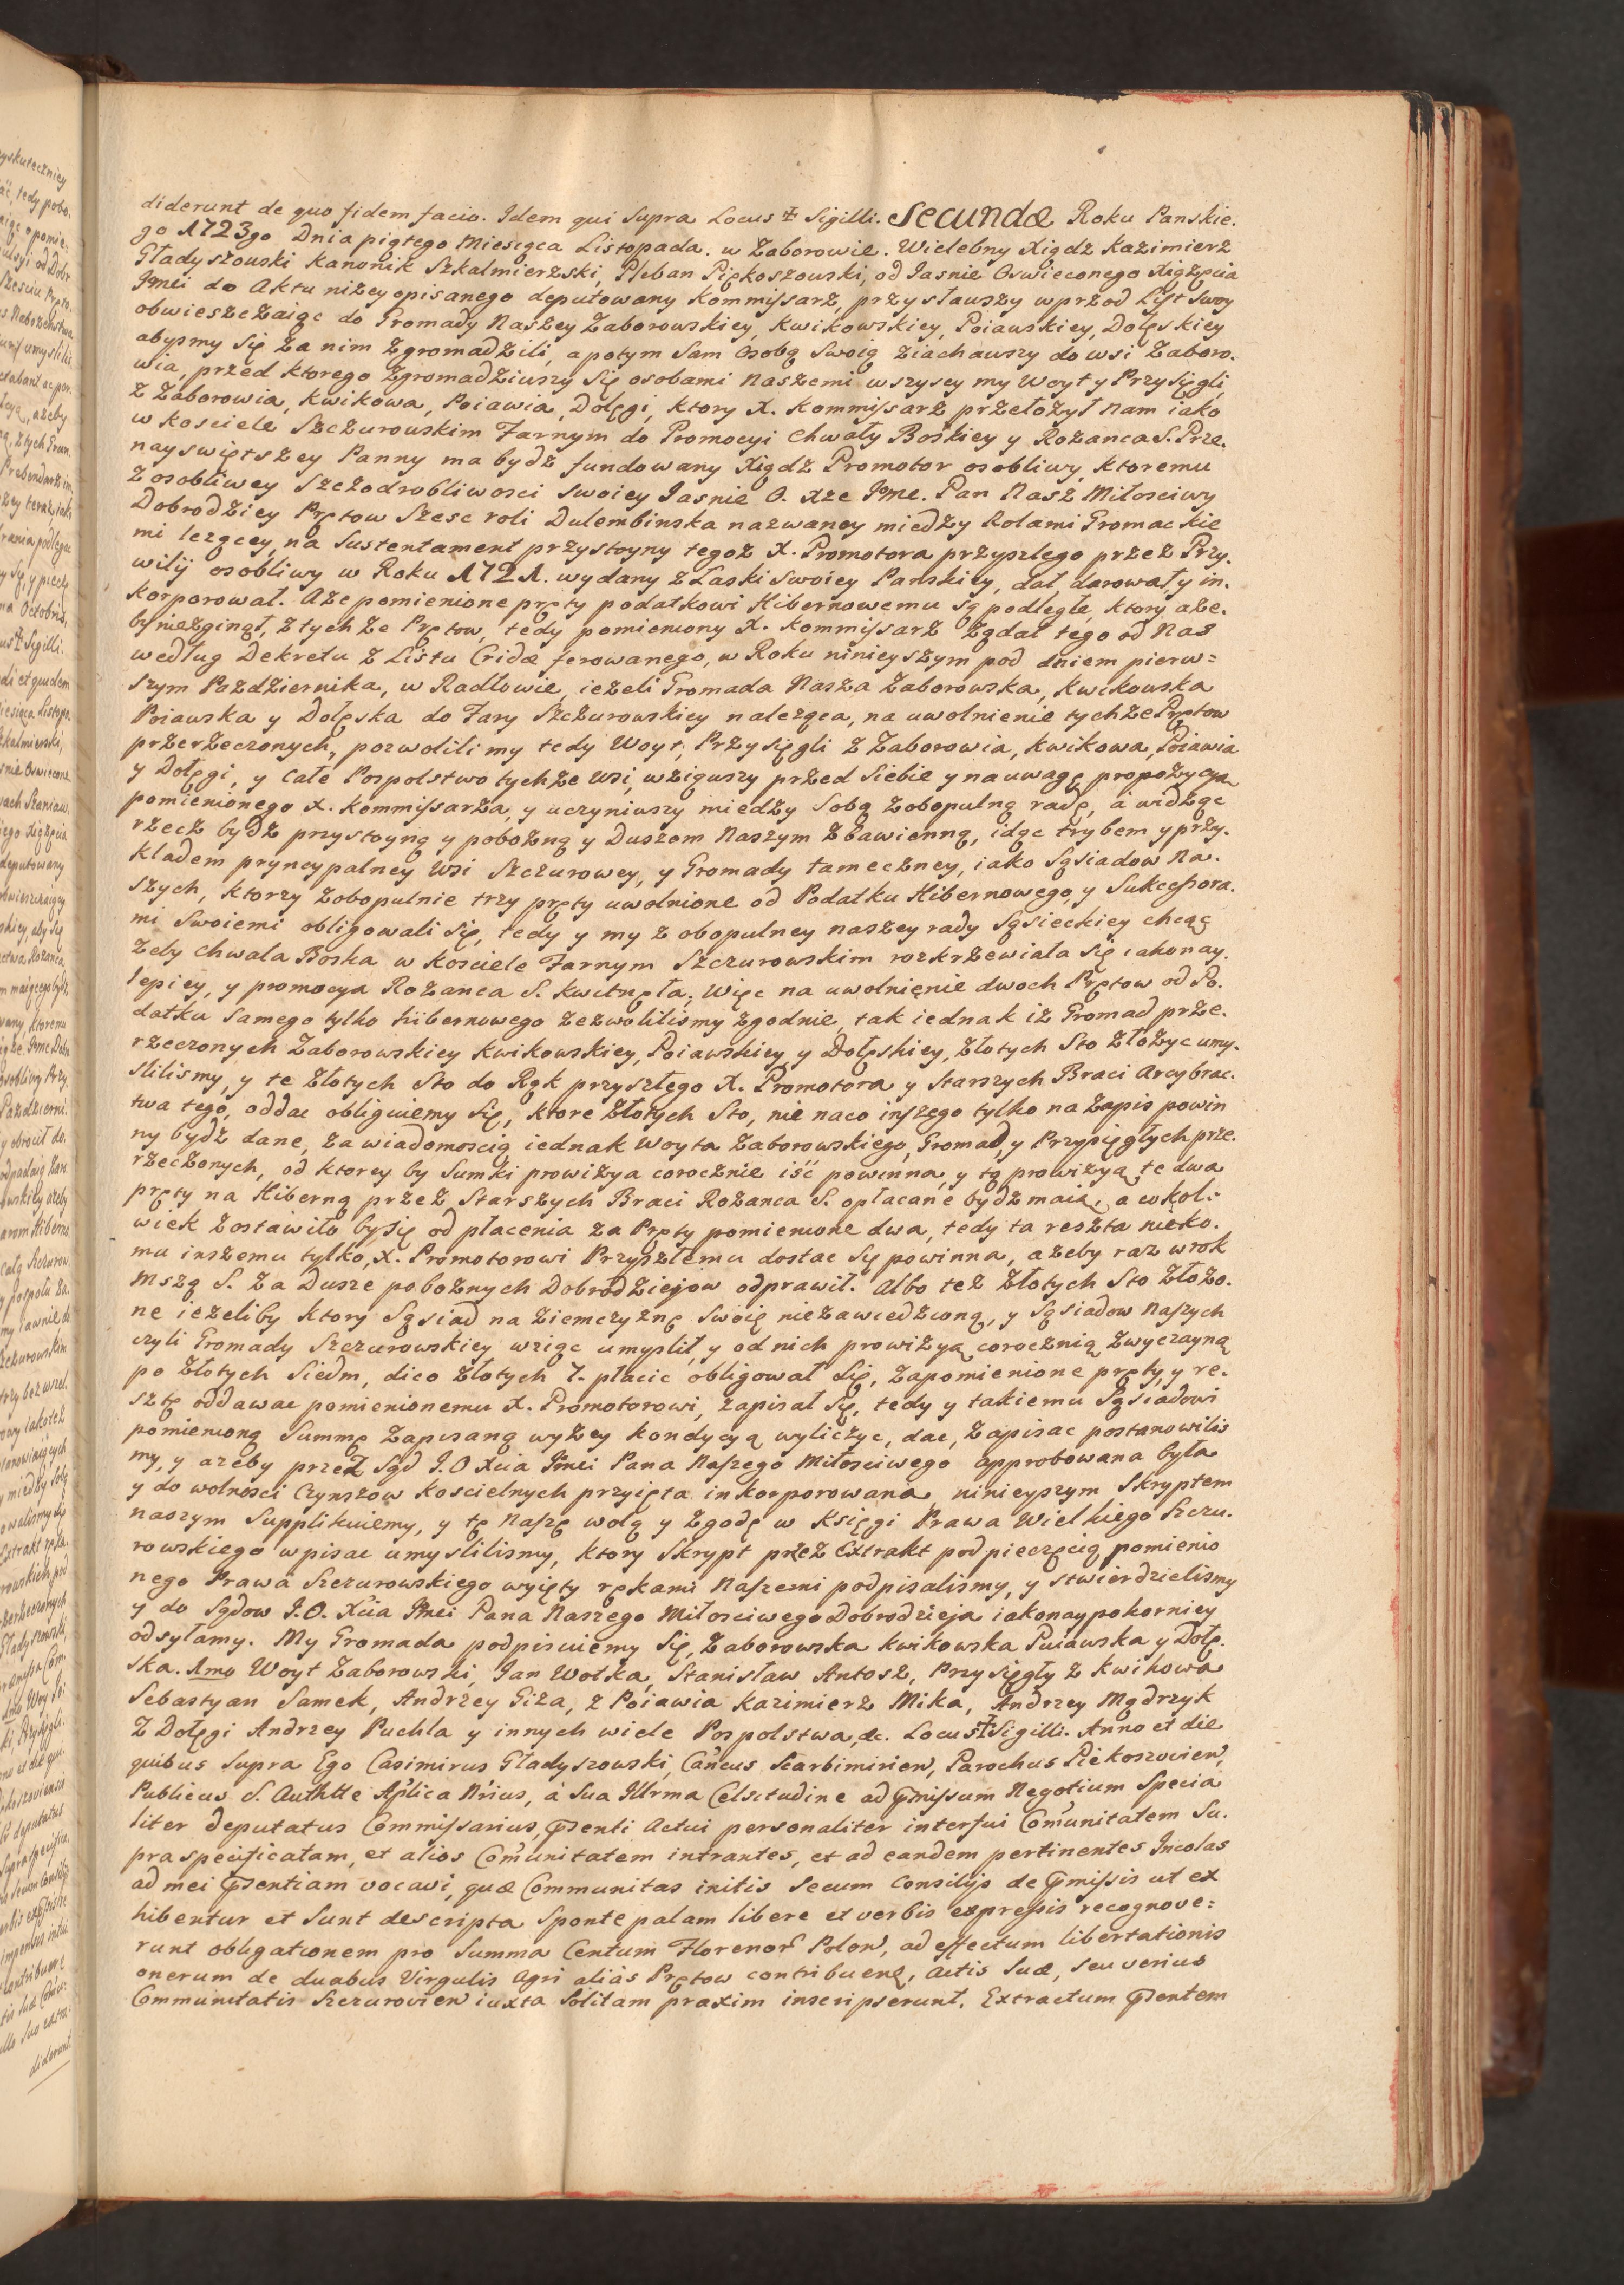 diderunt de quo fidem facio. Idem qui supra Locus ✠ Sigilli. Secundæ Roku Panskie.
go 1723go Dnia piątego Miesiąca Listopada. w Zaborowie. Wielebny Xiądz Kazimierz
Gładyszouski Kanonik Szkalmierzski, Pleban Piękoszouski, od Iasnie Oswieconego Xiążęcia
Jmci do Aktu niżey opisanego deputowany Kommissarz, przysłauszy wprzod List swoy
obwieszczaiąc do Gromady Naszey Zaborowskiey, Kwikowskiey, Poiauskiey, Dołęskiey
abysmy się za nim zgromadzili, a potym sam osobą swoią ziachauszy do wsi Zaboro.
wia, przed ktorego zgromadziuszy się osobami naszemi wszyscy my Woyt y Przysięgli,
z Zaborowia, Kwikowa, Poiawia, Dołęgi, ktory X. Kommissarz przełożył nam iako
w kosciele Szczurouskim Farnym do Promocyi Chwały Boskiey y Rożanca S. Prze.
nayswiętszey Panny ma bydz fundowany Xiądz Promotor osobliwy, ktoremu
z osobliwey Szczodrobliwosci swoiey Jasnie O. Xże Jme. Pan Nasz Miłosciwy
Dobrodziey Prętow Szesc roli Dulembinska nazwaney miedzy Rolami Gromackie
mi leżącey, na sustentament przystoyny tegoż X. Promotora przyszłego przez Przy.
wiliy osobliwy w Roku 1721. wydany z Łaski swoiey Panskiey, dał, darował, y in.
korporował. Aże pomienione pręty podatkowi Hibernowemu są podległe, ktory aże.
by niezginął, z tychże Prętow, tedy pomieniony X. Kommissarz żądał tego od Nas
według Dekretu z Listu Cridæ ferowanego, w Roku ninieyszym pod dniem pierw=
szym Pazdziernika, w Radłowie, ieżeli Gromada Nasza Zaborowska, Kwikouska
Poiauska y Dołęska do Fary Szczurowskiey należąca, na uwolnienie tychże Prętow
przerzeczonych, pozwolili my tedy Woyt, Przysięgli z Zaborowia, Kwikowa, Poiawia
y Dołęgi, y całe Pospolstwo tychże Wsi, wziąuszy przed siebie y na uwagę propozycyą
pomienionego X. Kommissarza, y uczyniuszy miedzy sobą zobopulną radę, a widząc
rzecz bydz przystoyną y pobożną y Duszom Naszym zbawienną, idąc trybem y przy.
kładem pryncypalney Wsi Szczurowey, y Gromady tameczney, iako Sąsiadow Na.
szych, ktorzy zobopulnie trzy pręty uwolnione od Podatku Hibernowego, y Sukcessora.
mi swoiemi obligowali się, tedy y my z obopulney naszey rady Sąsieckiey chcąc
żeby chwała Boska w kosciele Farnym Szczurowskim rozkrzewiała się iakonay.
lepiey, y promocya Rożanca S. kwitnęła, więc na uwolnienie dwoch Prętow od Po.
datku samego tylko hibernowego zezwolilismy zgodnie, tak iednak iż Gromad prze.
rzeczonych Zaborowskiey Kwikowskiey, Poiawskiey y Dołęskiey, złotych Sto złożyc umy.
slilismy, y te złotych sto do Rąk przyszłego X. Promotora y starszych Braci Arcybrac.
twa tego, oddac obliguiemy się, ktore złotych sto, nie naco inszego tylko na zapis powin
ny bydz dane, za wiadomoscią iednak Woyta Zaborowskiego, Gromad, y Przysięgłych prze.
rzeczonych, od ktorey by sumki prowizya corocznie iść powinna, y tą prowizyą te dwa
pręty na Hiberną przez Starszych Braci Rożanca S. opłacane bydz maią, a cokol.
wiek zostawiło by się od płacenia za Pręty pomienione dwa, tedy ta reszta nieko.
mu inszemu tylko, X. Promotorowi Przyszłemu dostac się powinna, ażeby raz w rok
Mszą S. za Dusze pobożnych Dobrodziejow odprawił. Albo też złotych sto złożo.
ne ieżeliby ktory Sąsiad na ziemczyznę swoię niezawiedzioną, y Sąsiadow naszych
czyli Gromady Szczurowskiey wziąc umyslił, y od nich prowizyą corocznią zwyczayną
po złotych siedm, dico złotych 7. płacic obligował się, zapomienione pręty, y re.
sztę oddawac pomienionemu X. Promotorowi, zapisał się, tedy y takiemu Sąsiadowi
pomienioną Summę zapisaną wyżey kondycyą wyliczyc, dac, zapisac postanowilis
my, y ażeby przez Sąd J. O Xcia Jmci Pana Naszego Miłosciwego approbowana była
y do wolnosci Czynszow koscielnych przyięta inkorporowana, ninieyszym Skryptem
naszym supplikuiemy, y tę naszę wolą y zgodę w Księgi Prawa Wielkiego Szczu.
rowskiego wpisac umyslilismy, ktory Skrypt przez Extrakt pod pieczęcią pomienio
nego Prawa Szczurowskiego wyięty rękami naszemi podpisalismy, y stwierdzielismy
y do Sądow J. O. Xcia Jmci Pana Naszego Miłosciwego Dobrodzieja iakonaypokorniey
odsyłamy. My Gromada podpisuiemy się, Zaborowska Kwikowska Puiawska y Dołę.
ska. Imo Woyt Zaborowski, Jan Wołka, Stanisław Antosz, Przysięgły z Kwikowa
Sebastyan Samek, Andrzey Giza, z Poiawia Kazimierz Mika, Andrzey Mądrzyk
Z Dołęgi Andrzey Puchla y innych wiele Pospolstwa, &c. Locus ✠ Sigilli. Anno et die
quibus supra Ego Casimirus Gładyszowski, Cancus Scarbimirien, Parochus Piekoszovien,
Publicus S. Authtte Aplica Nrius, à Sua Illrma Celsitudine ad præmissum Negotium Specia
liter deputatus Commissarius, præsenti Actui personaliter interfui Comunitatem Su.
praspecificatam, et alios Comunitatem intrantes, et ad eandem pertinentes Incolas
ad mei præsentiam vocavi, quæ Communitas initis secum consilijs de præmissis ut ex
hibentur et sunt descripta sponte palam libere et verbis expressis recognove=
runt obligationem pro Summa Centum Florenor Polon, ad effectum libertationis
onerum de duabus Virgulis Agri aliàs Prętow contribuenę, Actis suæ, seu verius
Communitatis Szczurovien iuxta solitam praxim inscripserunt. Extractum præsentem